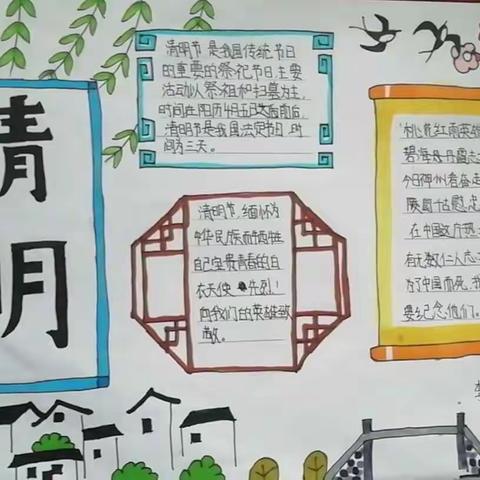 清明
清明节是我国传统节日
的重要的祭祀节日主要
活动以祭祖和扫墓为主,
时间在阳历4月五日前后
清明节是我国法定节日,时
间为三天。
清明节,缅怀为
中华民族而牺牲
自己宝贵青春的白
衣天使 先烈!
向我们的英雄致
敬。
红雨英雄
碧海丹霞志
今日神州看奋
陵园千古慰忠
在中国这片热
有无数仁人志
为了中国而死,我
要纪念他们。